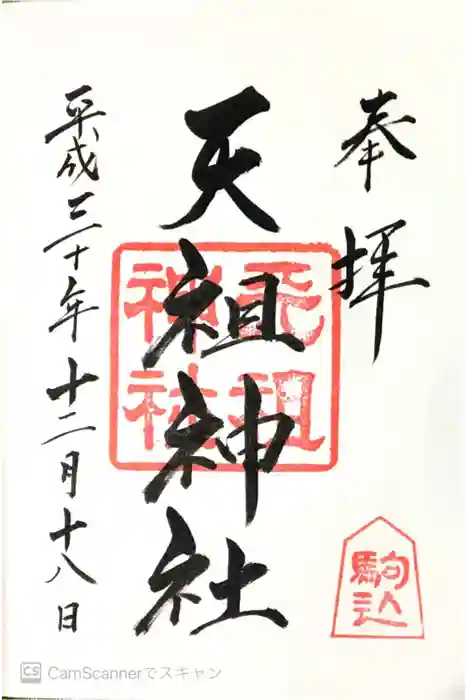 奉拝
天祖神社
天祖神社
駒込
平成三十年十二月十八日
CS CamScannerでスキャン